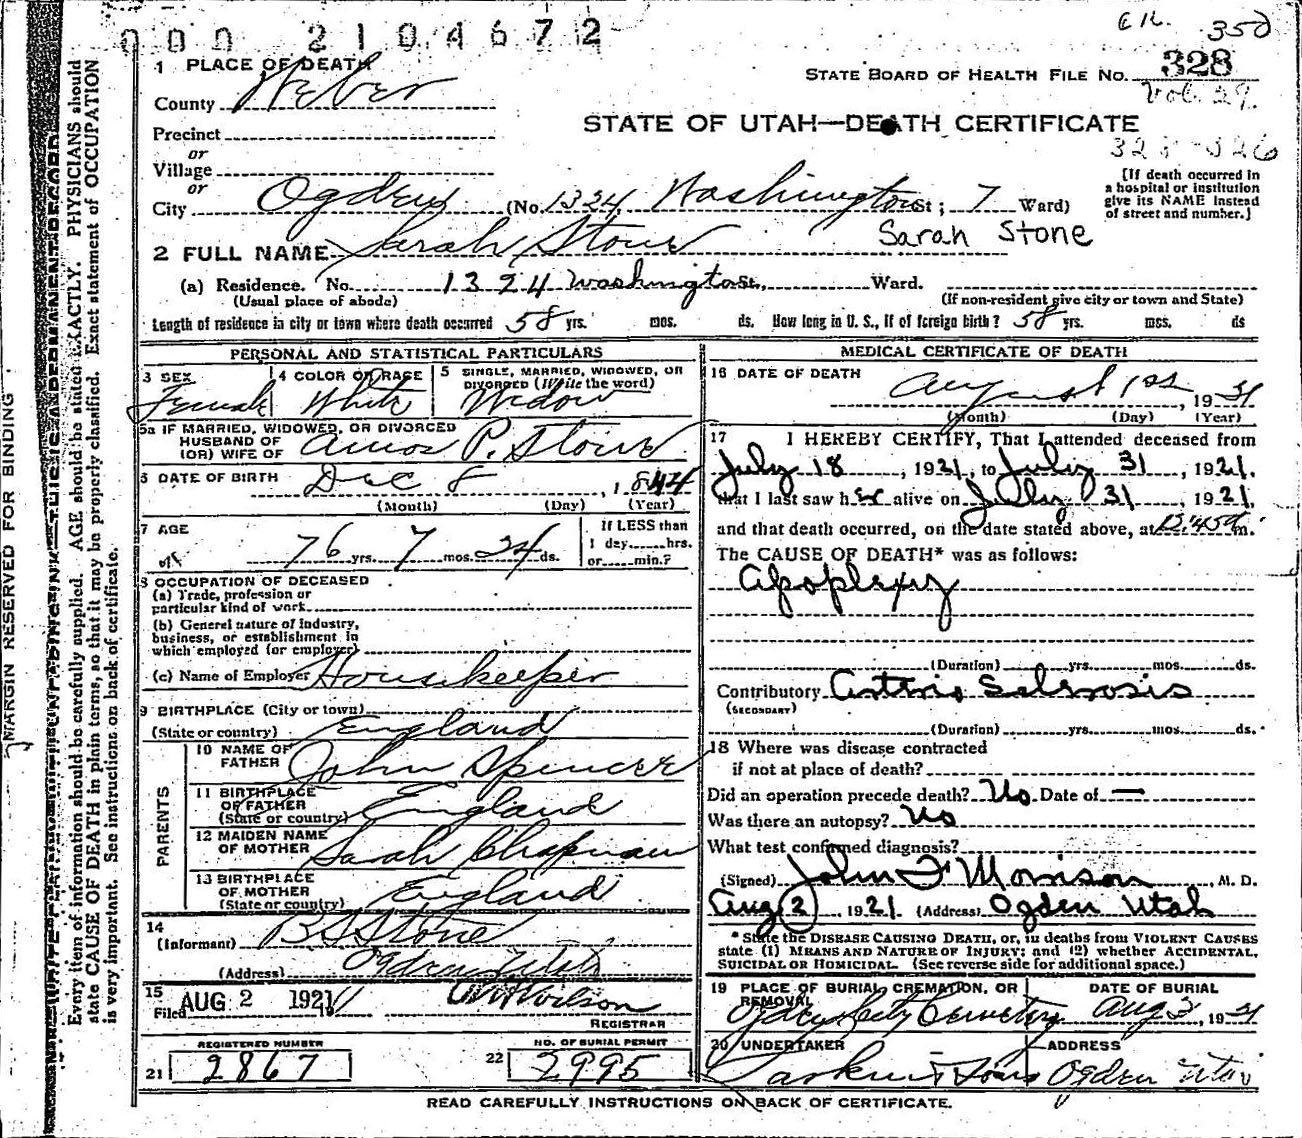 000 2104672
E K. 350
1 PLACE OF DEATH
STATE BOARD OF HEALTH FILE NO. 328
Vol. 29.
County Weber
STATE OF UTAH—DEATH CERTIFICATE
Precinct
or
Village
or
[If death occurred in a hospital or institution give its NAME instead of street and number.]
City Ogden (No. 1324, Washington St; 7 Ward)
Sarah Stone
2 FULL NAME Sarah Stone
(a) Residence. No. 1324 Washington St., Ward.
(Usual place of abode) (If non-resident give city or town and State)
Length of residence in city or town where death occurred 58 yrs. mos. ds. How long in U. S., if of foreign birth? 58 yrs. mos. ds
PERSONAL AND STATISTICAL PARTICULARS
3 SEX Female
4 COLOR OR RACE White
5 SINGLE, MARRIED, WIDOWED, OR DIVORCED (Write the word) Widow
5a IF MARRIED, WIDOWED, OR DIVORCED
HUSBAND OF
(OR) WIFE OF Amos P. Stone
6 DATE OF BIRTH Dec 8, 1844
(Month) (Day) (Year)
7 AGE 76 yrs. 7 mos. 24 ds.
If LESS than
1 day......hrs.
or.....min.?
8 OCCUPATION OF DECEASED
(a) Trade, profession or
particular kind of work
(b) General nature of Industry,
business, or establishment in
which employed (or employer)
(c) Name of Employer Housekeeper
9 BIRTHPLACE (City or town)
(State or country) England
PARENTS
10 NAME OF FATHER John Spencer
11 BIRTHPLACE OF FATHER
(State or country) England
12 MAIDEN NAME OF MOTHER Sarah Chapman
13 BIRTHPLACE OF MOTHER
(State or country) England
14
(Informant) B S Stone
(Address) Ogden Utah
15
Filed AUG 2 1921
Wilson
REGISTRAR
REGISTERED NUMBER
21 2867
NO. OF BURIAL PERMIT
22 2995
MEDICAL CERTIFICATE OF DEATH
16 DATE OF DEATH August 1st, 1921
(Month) (Day) (Year)
17 I HEREBY CERTIFY, That I attended deceased from
July 18, 1921, to July 31, 1921.
that I last saw her alive on July 31, 1921
and that death occurred, on the date stated above, at 12:45 a m.
The CAUSE OF DEATH* was as follows:
Apoplexy
(Duration) yrs. mos. ds.
Contributory Arterio Sclerosis
(SECONDARY)
(Duration) yrs. mos. ds.
18 Where was disease contracted
if not at place of death?
Did an operation precede death? No Date of —
Was there an autopsy? No
What test confirmed diagnosis?
(Signed) John F Morrison, M. D.
Aug 2, 1921 (Address) Ogden Utah
* State the DISEASE CAUSING DEATH, or, in deaths from VIOLENT CAUSES
state (1) MEANS AND NATURE OF INJURY; and (2) whether ACCIDENTAL,
SUICIDAL OR HOMICIDAL. (See reverse side for additional space.)
19 PLACE OF BURIAL, CREMATION, OR REMOVAL
Ogden City Cemetery
DATE OF BURIAL
Aug 3, 1921
20 UNDERTAKER
Larkin & Sons
ADDRESS
Ogden Utah
READ CAREFULLY INSTRUCTIONS ON BACK OF CERTIFICATE.
MARGIN RESERVED FOR BINDING
Every item of information should be carefully supplied. AGE should be stated EXACTLY. PHYSICIANS should
state CAUSE OF DEATH in plain terms, so that it may be properly classified. Exact statement of OCCUPATION
is very important. See instructions on back of certificate.